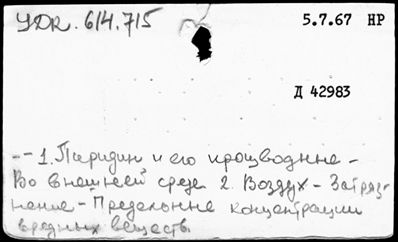 УДК. 614.715
5.7.67 НР
Д 42983
-- 1. Пиридин и его производные -
Во внешней среде 2. Воздух - Загряз-
нение - Предельные концентрации
вредных веществ.